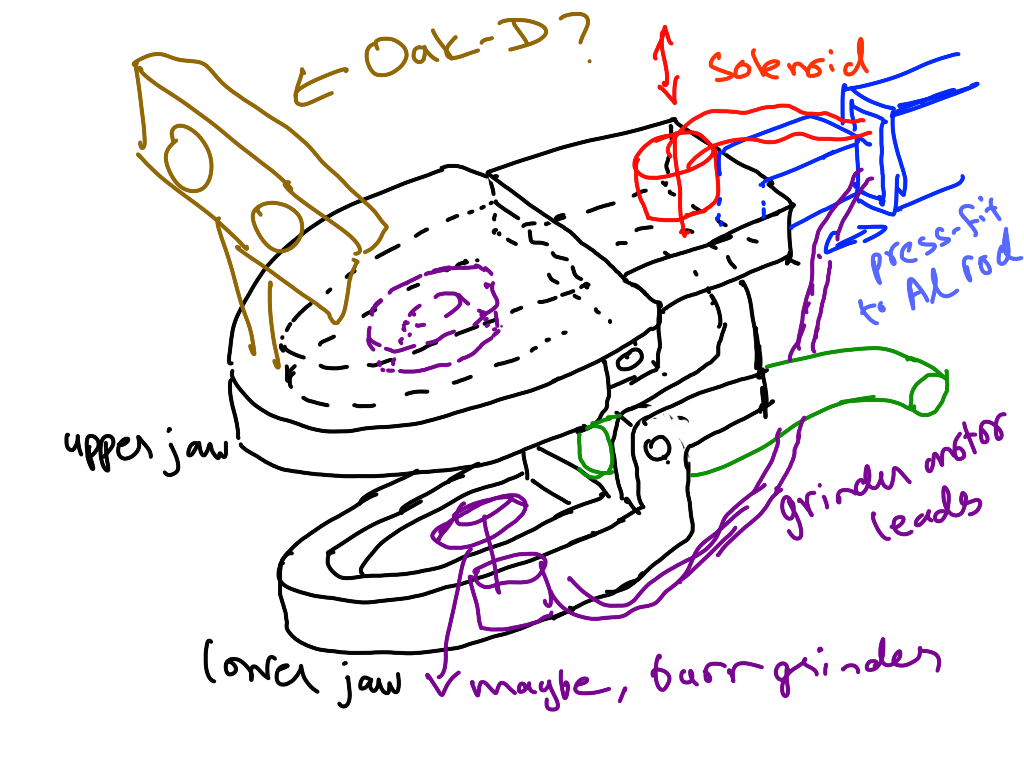 Oak-D?
solenoid
press-fit
to Al rod
upper jaw
grinder motor
leads
lower jaw
maybe, burr grinder